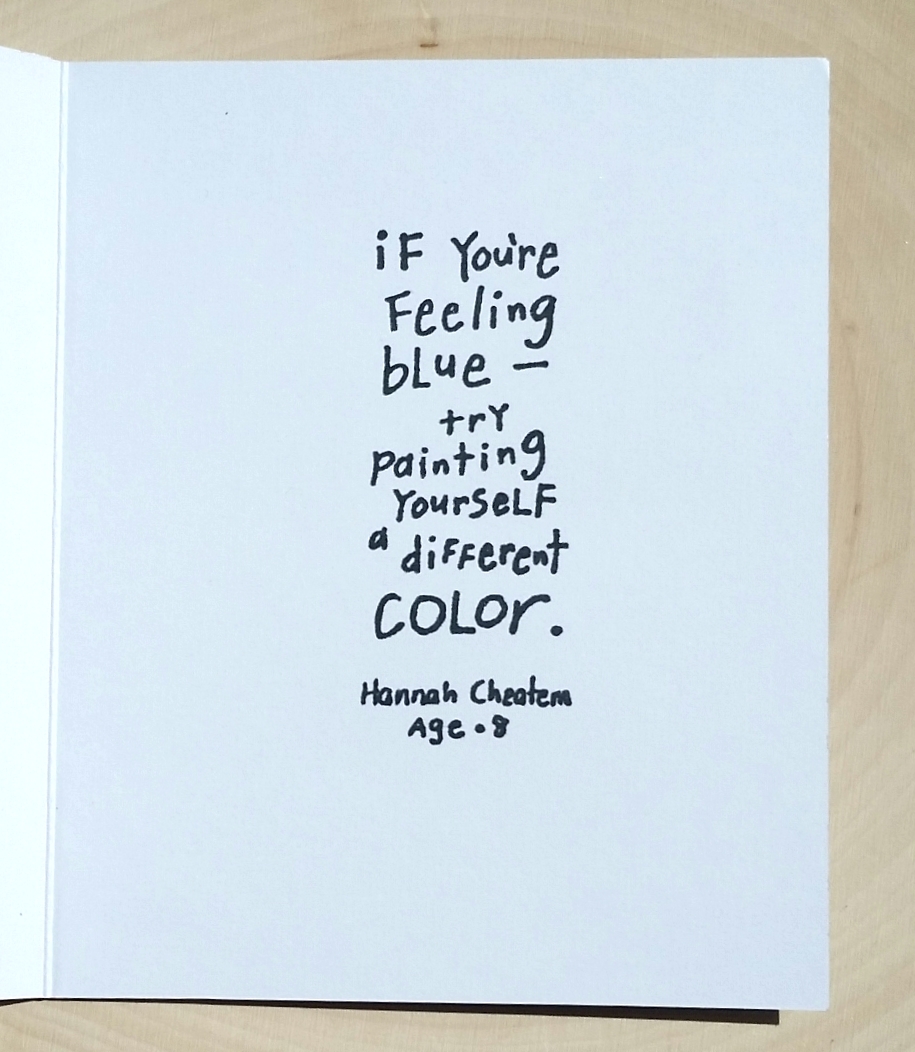 iF You're
Feeling
bLue –
trY
painting
YourseLF
a diFFerent
COLOr.
Hannah Cheatem
Age • 8